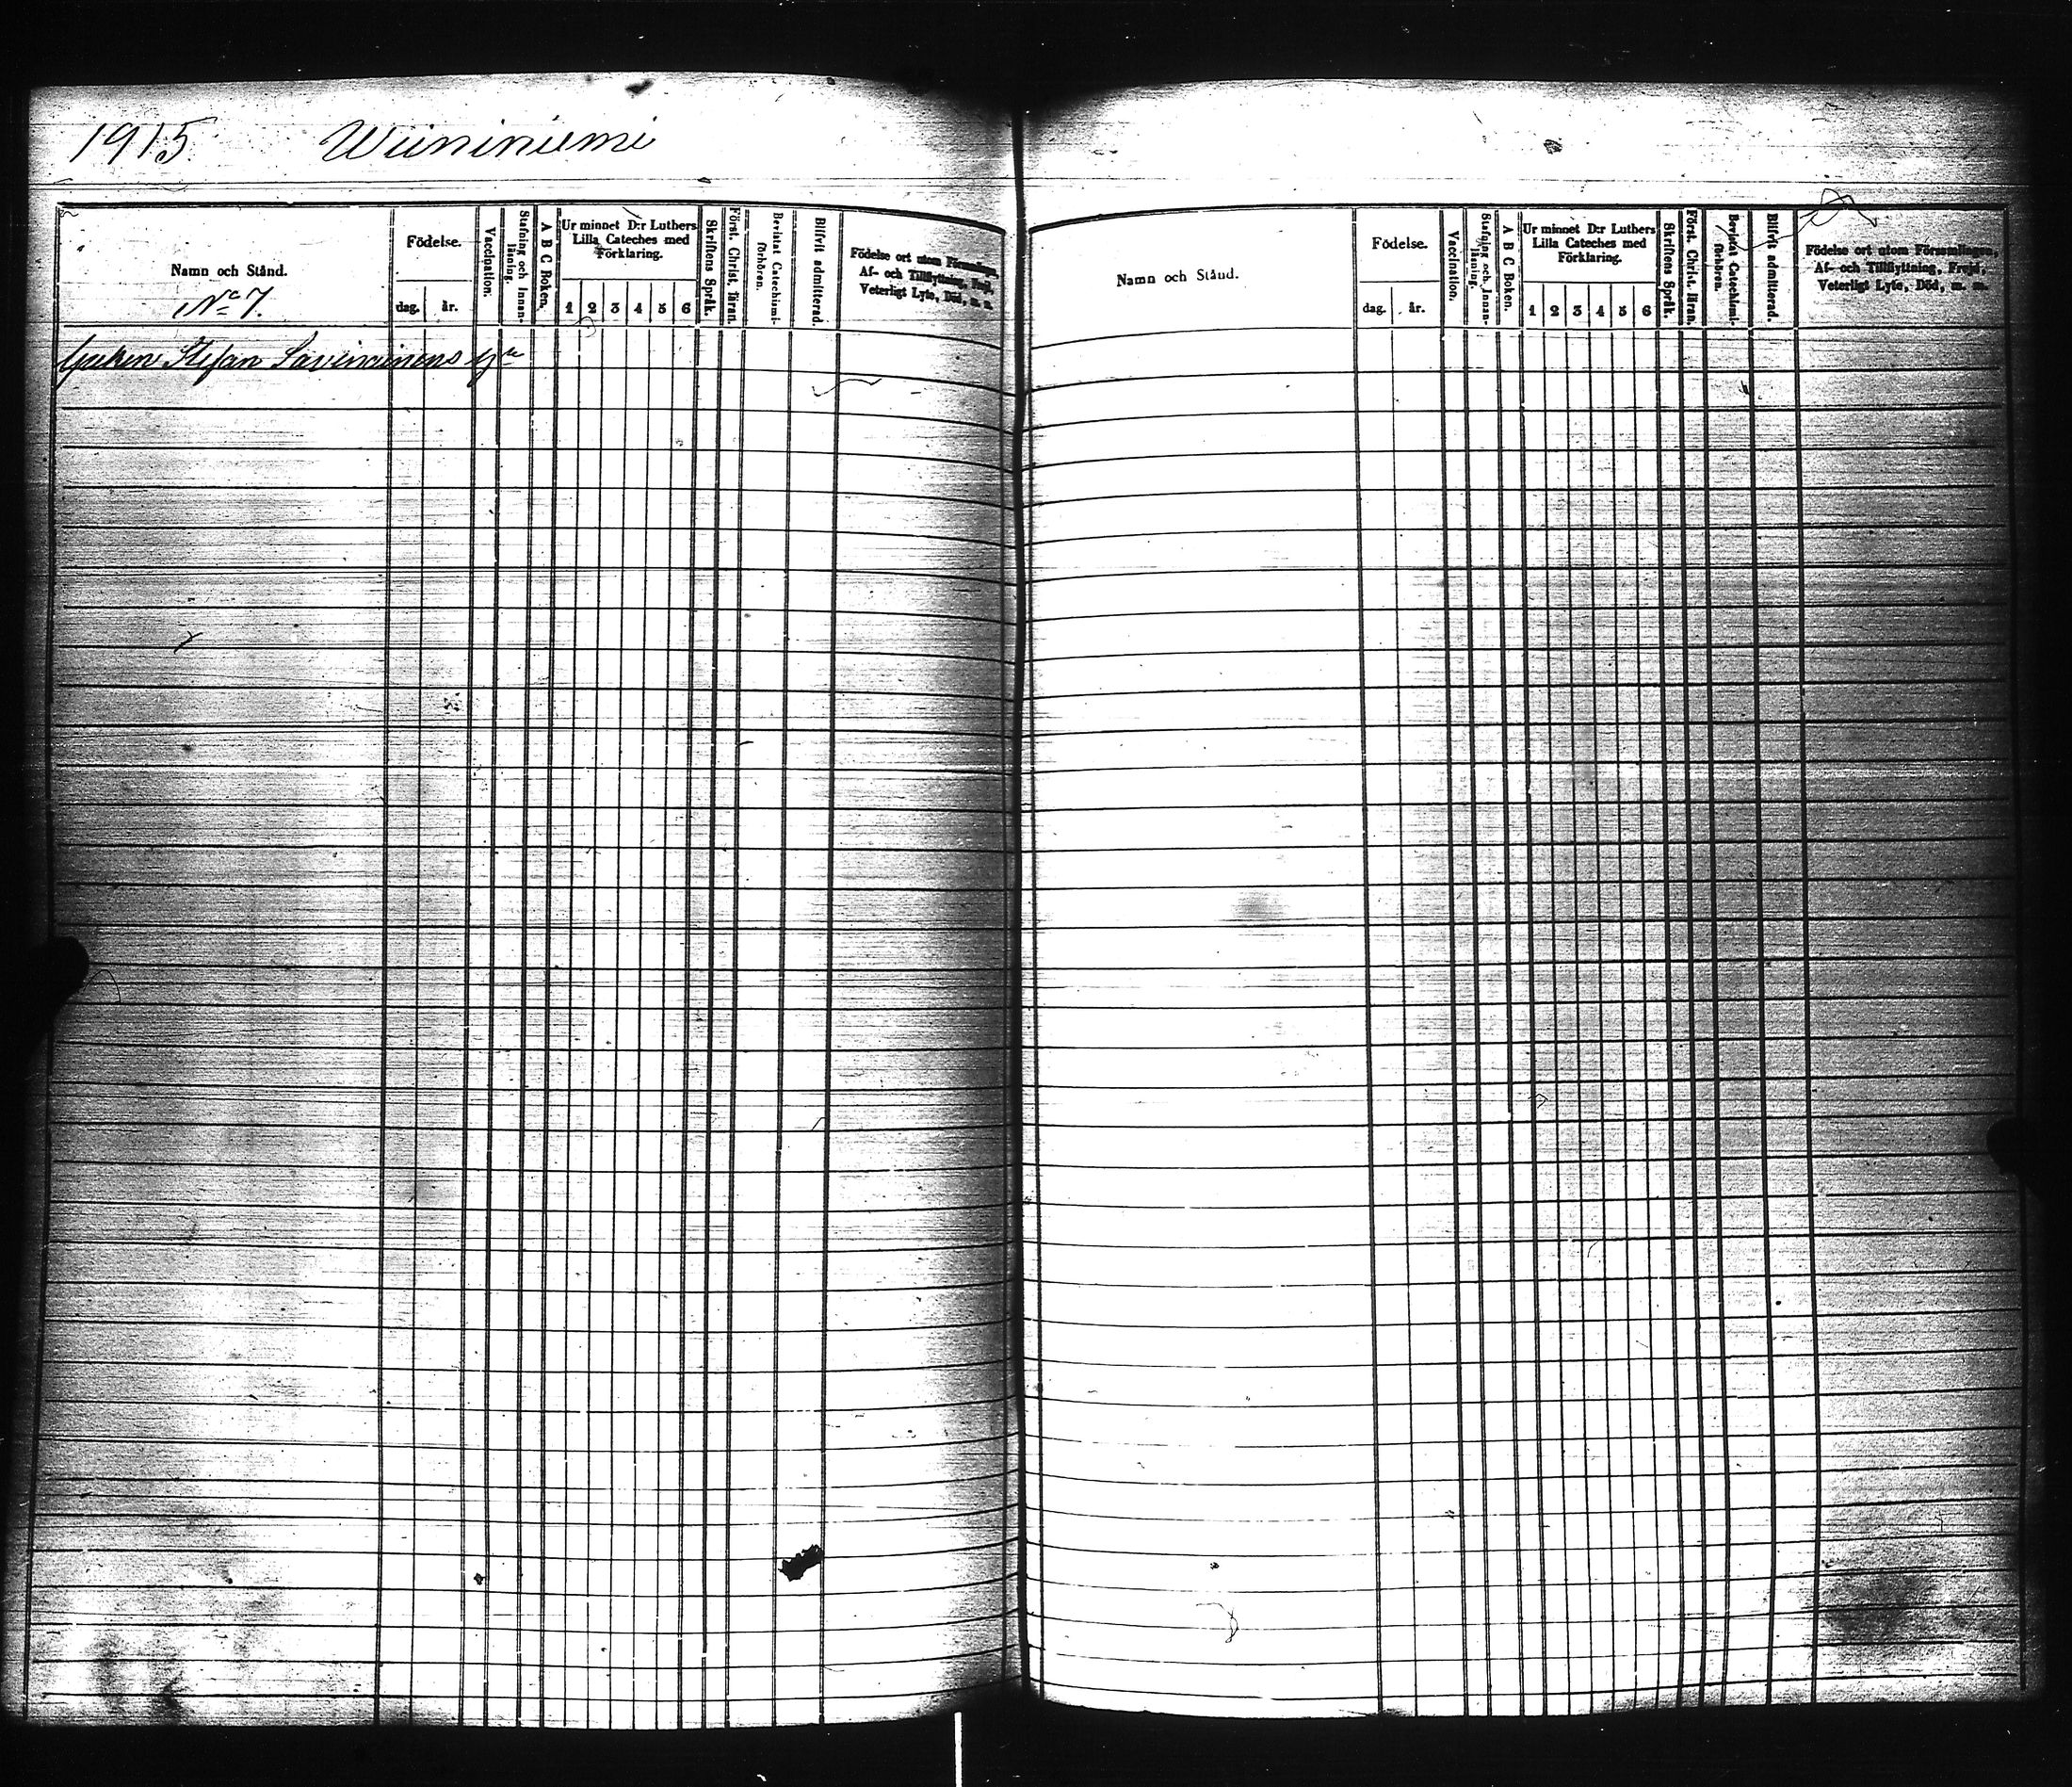 1915 Wiininiemi
Namn och Stånd.
No 7.
Födelse.
dag.
år.
Vaccination.
Stafning och Innan-
läsning.
A B C Boken.
Ur minnet D:r Luthers
Lilla Cateches med
Förklaring.
1 2 3 4 5 6
Skriftens Språk.
Först. Christ. läran.
Bevistat Catechismi-
förhören.
Blifvit admitterad.
Födelse ort utom Församlingen,
Af- och Tillflyttning, Frejd,
Veterligt Lyte, Död, m. m.
Stefan
Namn och Stånd.
Födelse.
dag.
år.
Vaccination.
Stafning och Innan-
läsning.
A B C Boken.
Ur minnet D:r Luthers
Lilla Cateches med
Förklaring.
1 2 3 4 5 6
Skriftens Språk.
Först. Christ. läran.
Bevistat Catechismi-
förhören.
Blifvit admitterad.
Födelse ort utom Församlingen,
Af- och Tillflyttning, Frejd,
Veterligt Lyte, Död, m. m.